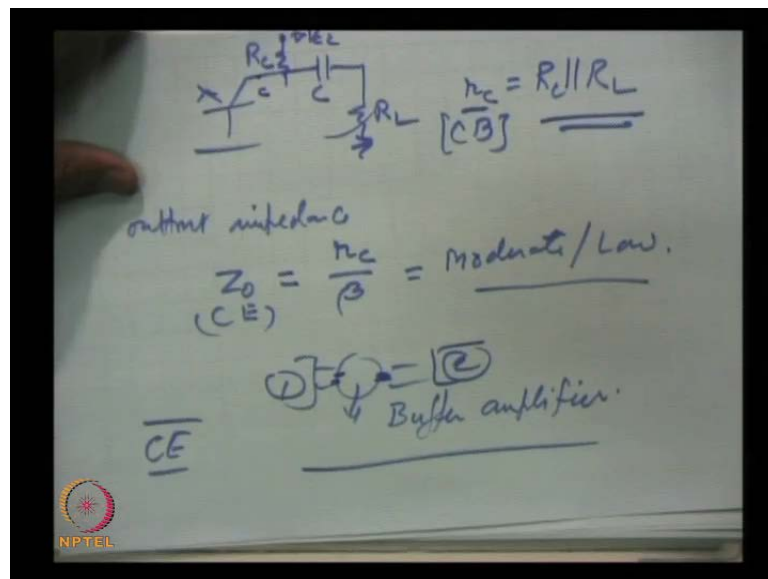 RC
C
C
RL
rc = RC || RL
[CB]
output impedance
Z0 = rc / β = Moderate / Low.
(CE)
1
2
Buffer amplifier.
CE
NPTEL